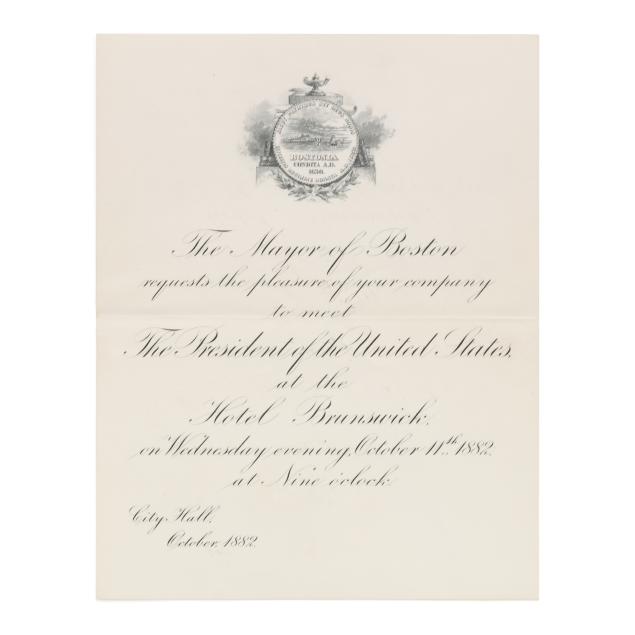 BOSTONIA
CONDITA A.D.
1630.
The Mayor of Boston
requests the pleasure of your company
to meet
The President of the United States,
at the
Hotel Brunswick,
on Wednesday evening, October 11th 1882,
at Nine o'clock.
City Hall,
October, 1882.